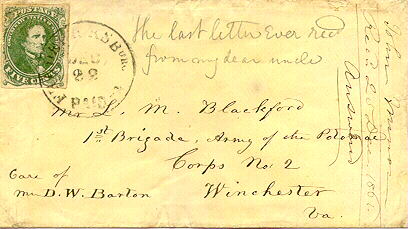 POSTAGE
FIVE CENTS
FREDERICKSBURG
DEC
22
PAID
The last letter ever rec'd
from my dear uncle
Mr L. M. Blackford
1st Brigade, Army of the Potomac
Corps No 2
Care of
Mr D. W. Barton
Winchester
Va.
John
Rec'd Dec 1861.
Answered